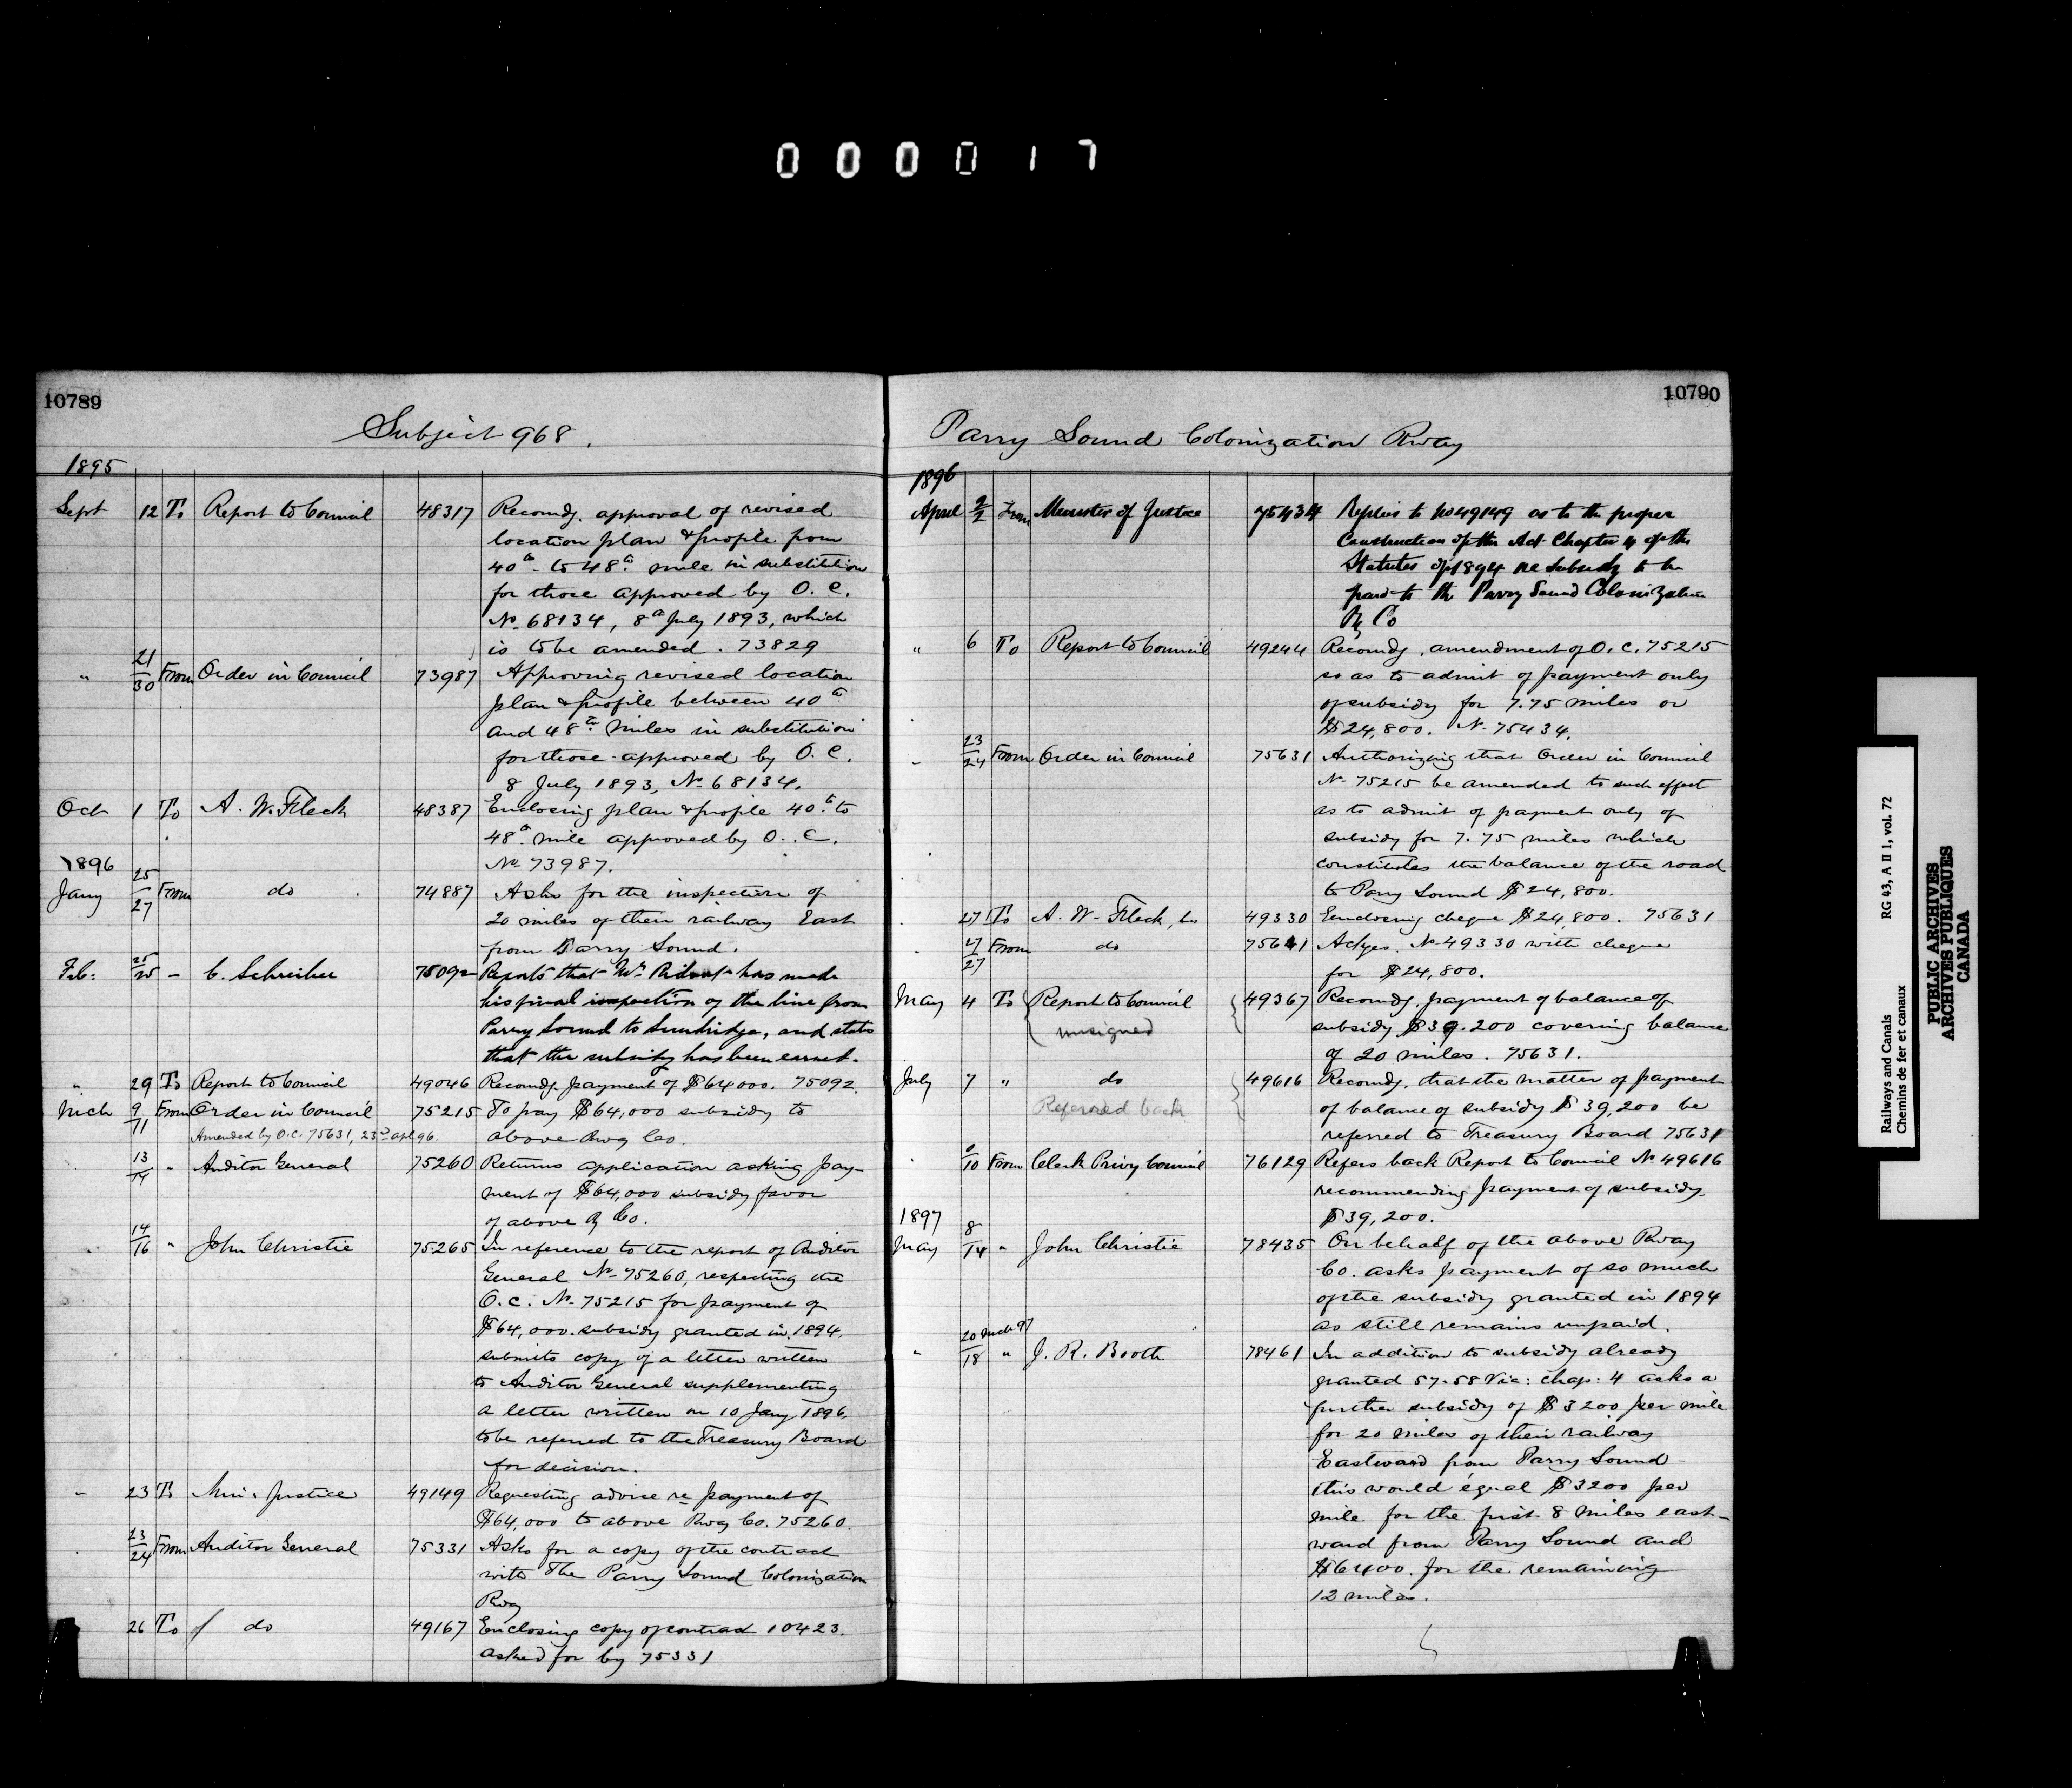 000017
10789
Subject 968.
1895
Sept 12 To Report to Council 48317 Recomdg. approval of revised
location plan & profile from
40th to 48th mile in substitution
for those approved by O. C.
No 68134, 8th July 1893, which
is to be amended. 73829
" 21/30 From Order in Council 73987 Approving revised location
plan & profile between 40th
and 48th miles in substitution
for those approved by O. C.
8 July 1893, No 68134.
Oct 1 To A. W. Fleck 48387 Enclosing plan & profile 40th to
48th mile approved by O. C.
No 73987.
1896
Jany 25/27 From do 74887 Asks for the inspection of
20 miles of their railway East
from Parry Sound.
Feb: 25/25 - C. Schreiber 75092 Reports that Mr Ridout has made
his final inspection of the line from
Parry Sound to Sundridge, and states
that the subsidy has been earned.
" 29 To Report to Council 49046 Recomdg. payment of $64000. 75092
Mch 9/11 From Order in Council 75215 To pay $64,000 subsidy to
Amended by O.C. 75631, 23rd apl 96. above Rwy Co.
13/14 " Auditor General 75260 Returns application asking pay-
ment of $64,000 subsidy favor
of above Ry Co.
14/16 " John Christie 75265 In reference to the report of Auditor
General No 75260, respecting the
O.C. No 75215 for payment of
$64,000 subsidy granted in 1894,
submits copy of a letter written
to Auditor General supplementing
a letter written on 10 Jany 1896,
to be referred to the Treasury Board
for decision.
" 23 To Min. Justice 49149 Requesting advice re payment of
$64,000 to above Rwy Co. 75260.
23/24 From Auditor General 75331 Asks for a copy of the contract
with The Parry Sound Colonization
Rwy
26 To do 49167 Enclosing copy of contract 10423.
asked for by 75331
10790
Parry Sound Colonization Rway
1896
April 2/2 From Minister of Justice 75434 Replies to No 49149 as to the proper
Construction of the Act Chapter 4 of the
Statutes of 1894 re subsidy to be
paid to the Parry Sound Colonization
Ry Co
" 6 To Report to Council 49244 Recomdg. amendment of O.C. 75215
so as to admit of payment only
of subsidy for 7.75 miles or
$24,800. No 75434.
23/24 From Order in Council 75631 Authorizing that Order in Council
No 75215 be amended to such effect
as to admit of payment only of
subsidy for 7.75 miles which
constitutes the balance of the road
to Parry Sound $24,800.
27 To A. W. Fleck, 49330 Enclosing cheque $24,800. 75631
27/27 From do 75641 Ackges. No 49330 with cheque
for $24,800.
May 4 To Report to Council 49367 Recomdg. payment of balance of
unsigned subsidy $39.200 covering balance
of 20 miles. 75631.
July 7 " do 49616 Recomdg. that the matter of payment
Referred back of balance of subsidy $39,200 be
referred to Treasury Board 75631
/10 From Clerk Privy Council 76129 Refers back Report to Council No 49616
recommending payment of subsidy
$39,200.
1897
May 8/14 " John Christie 78435 On behalf of the above Rway
Co. asks payment of so much
of the subsidy granted in 1894
as still remains unpaid.
" 20 Mch 97/18 " J. R. Booth 78461 In addition to subsidy already
granted 57-58 Vic: chap: 4 asks a
further subsidy of $3200 per mile
for 20 miles of their railway
Eastward from Parry Sound -
this would equal $3200 per
mile for the first 8 miles east-
ward from Parry Sound and
$6400. for the remaining
12 miles.
Railways and Canals RG 43, A II 1, vol. 72
Chemins de fer et canaux
PUBLIC ARCHIVES
ARCHIVES PUBLIQUES
CANADA